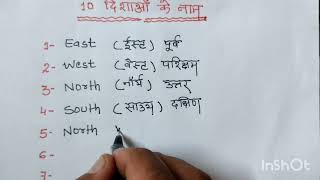 10 दिशाओं के नाम
1- East (ईस्ट) पूर्व
2- West (वेस्ट) पश्चिम
3- North (नॉर्थ) उत्तर
4- South (साउथ) दक्षिण
5- North
6-
7-
InShOt